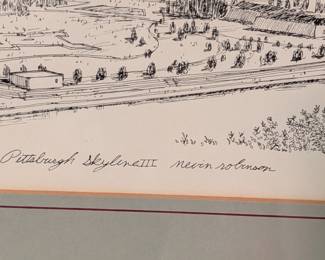 Pittsburgh Skyline III nevin robinson